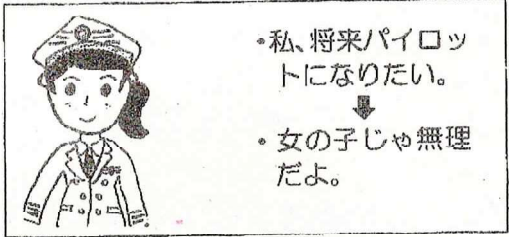 ・私、将来パイロッ
トになりたい。
⬇
・女の子じゃ無理
だよ。